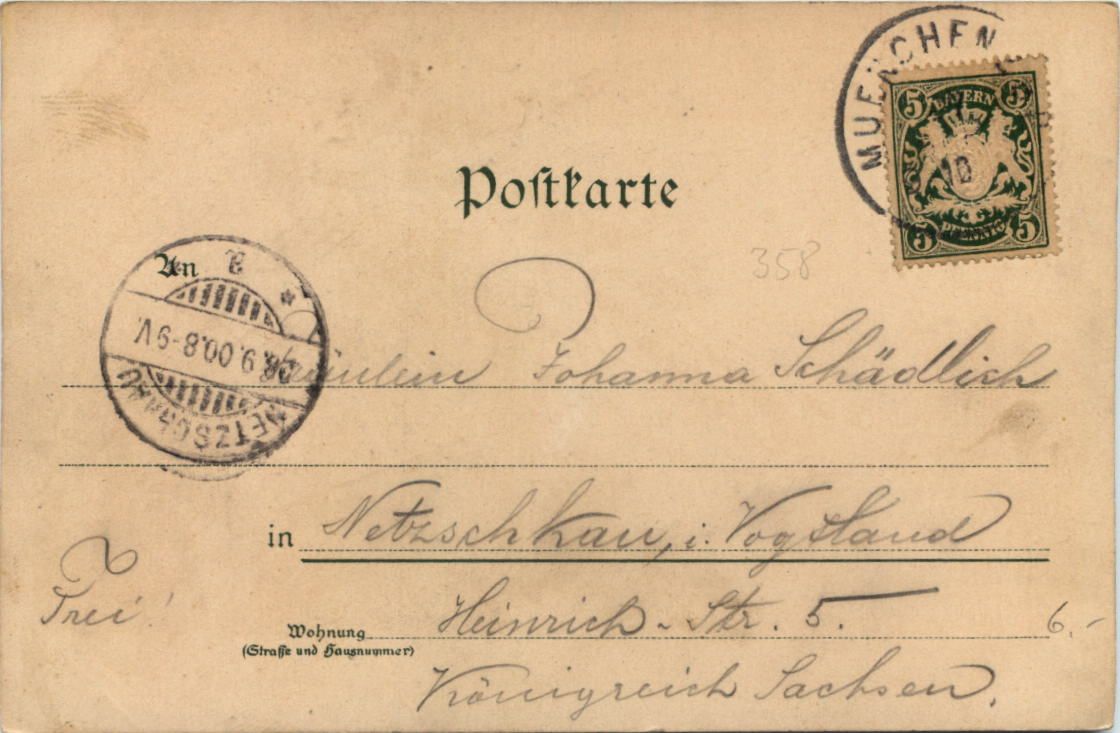 MUENCHEN
5 BAYERN 5
10
5 PFENNIG 5
Postkarte
358
An
NETZSCHKAU
9.00.8-9V.
Fräulein Johanna Schädlich
in Netzschkau, i. Vogtland
Frei!
Wohnung Heinrich-Str. 5. 6.-
(Straße und Hausnummer)
Königreich Sachsen.